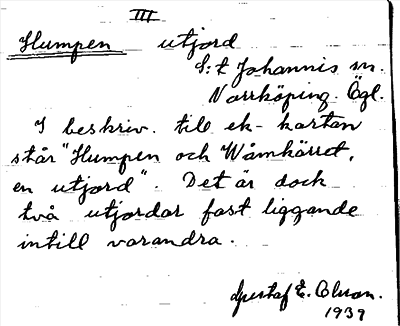 III
Humpen utjord
S:t Johannis sn.
Norrköping Ögl.
I beskriv. till ek-kartan
står "Humpen och Wåmkärret,
en utjord". Det är dock
två utjordar fast liggande
intill varandra.
Gustaf E. Olson.
1939